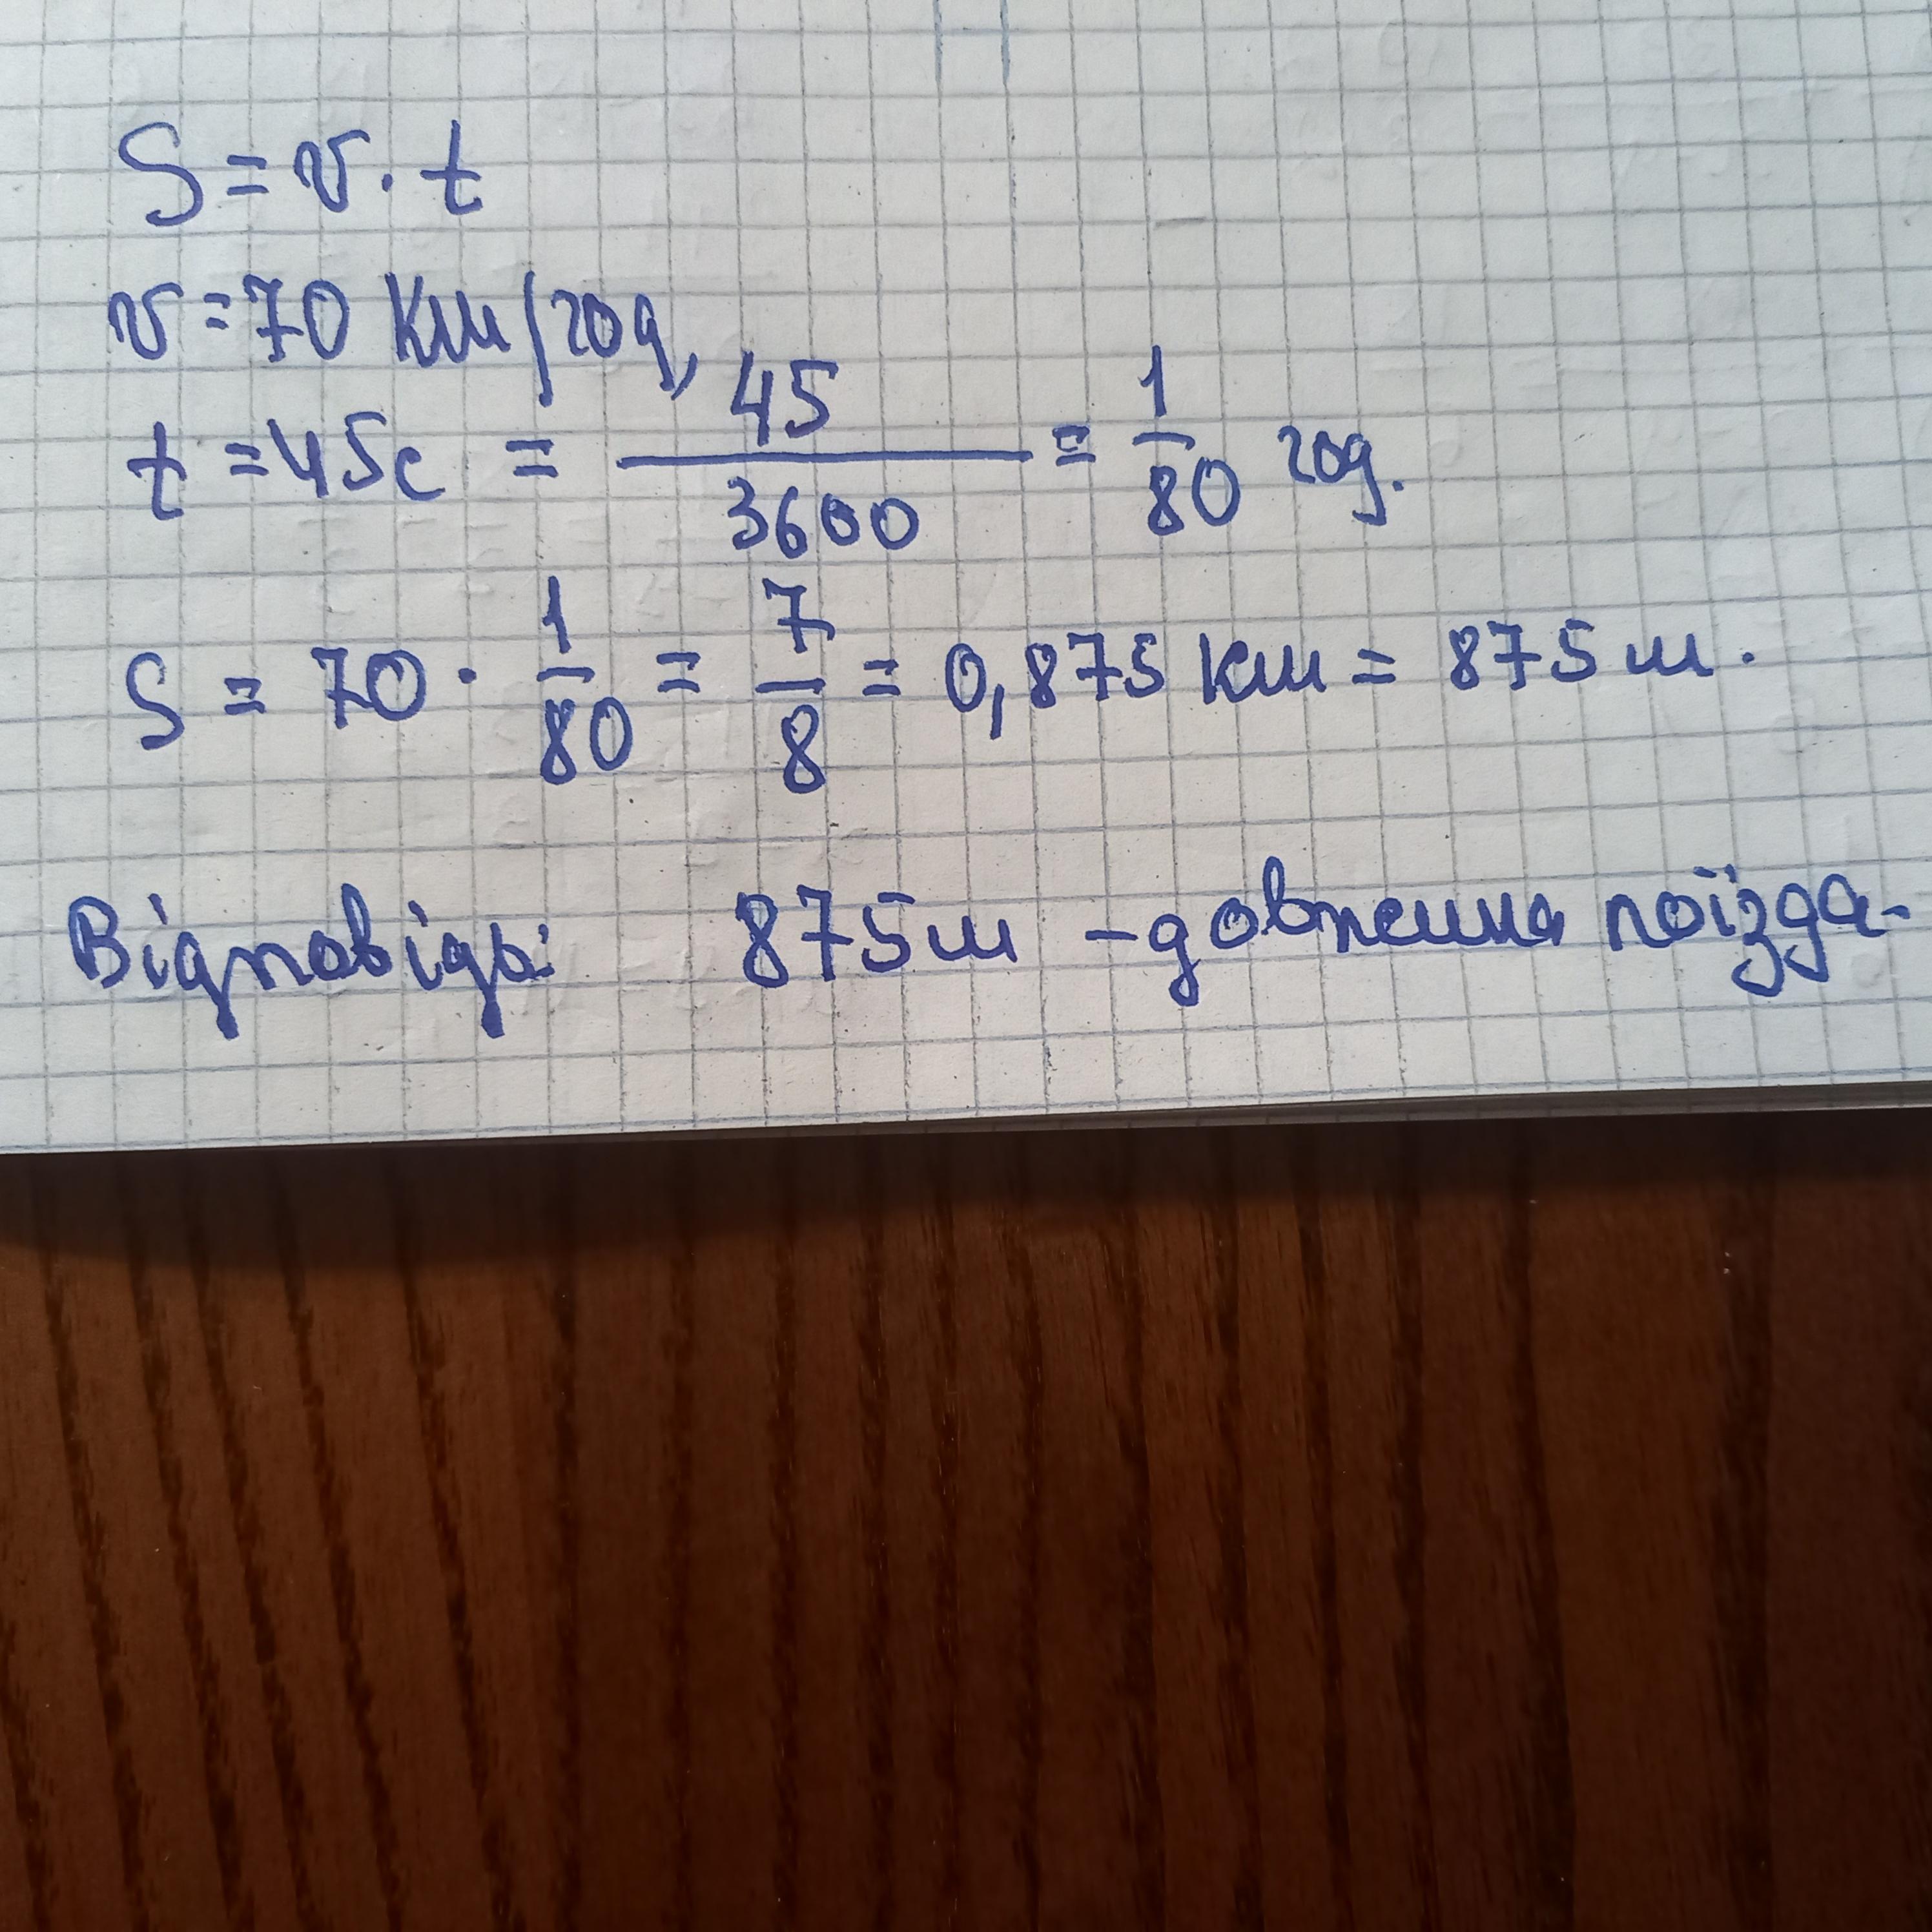 S = v · t
v = 70 км/год,
t = 45с = 45/3600 = 1/80 год.
S = 70 · 1/80 = 7/8 = 0,875 км = 875 м.
Відповідь: 875 м - довжина поїзда.